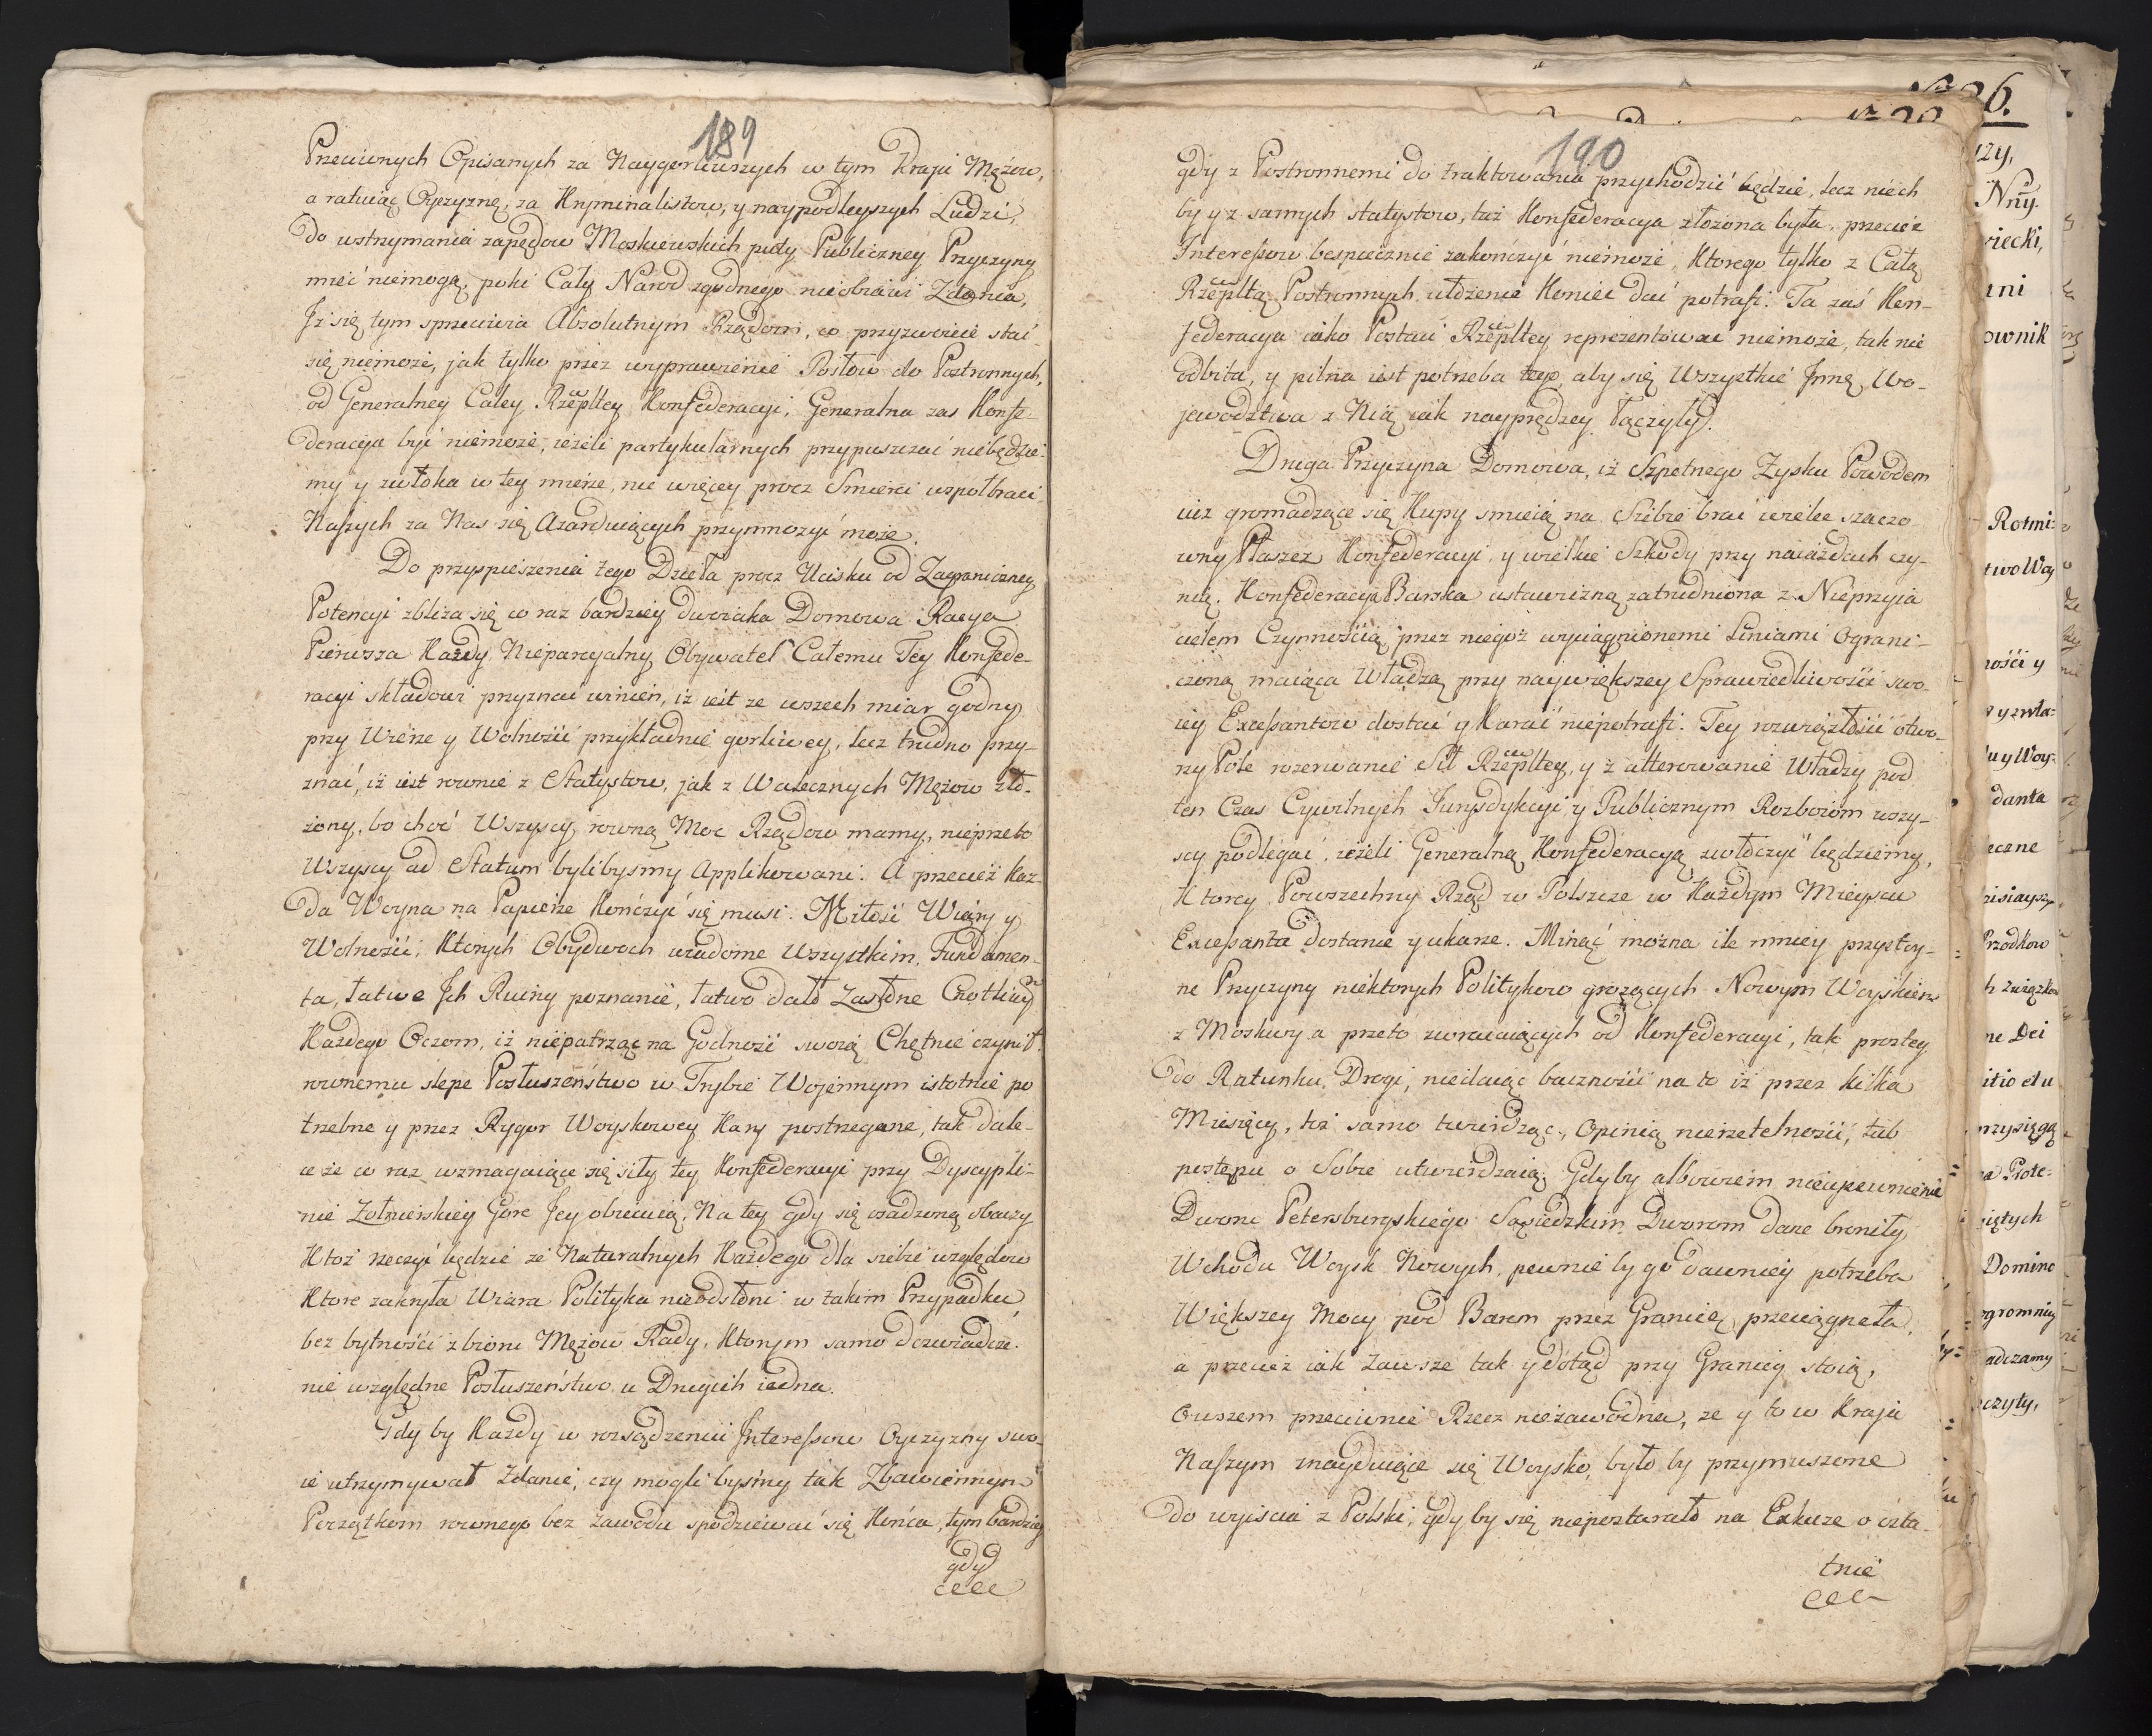 189
Przeciwnych Opisanych za Naygorliwszych w tym Kraju Mężow,
a ratuiąc Oyczyznę, za Kryminalistow, y naypodleyszych Ludzi,
do wstrzymania zapędow Moskiewskich póty Publiczney Przyczyny
mieć niemogą, poki Cały Narod zgodnego nieobiawi Zdania,
Iż się tym sprzeciwia Absolutnym Rządom, co przyzwoicie stać
się niemoże, jak tylko przez wyprawienie Posłow do Postronnych,
od Generalney Całey Rzepltey Konfederacyi, Generalna zas Konfe-
deracya być niemoże, ieżeli partykularnych przypuszczać niebędzie-
my y zwłoka w tey mierze, nic więcey procz Smierci wspołbraci
Naszych za Nas się Azarduiących przymnożyć może.
Do przyspieszenia tego Dzieła procz Ucisku od Zagraniczney
Potencyi zbliża się co raz bardziey dwoiaka Domowa Racya
Pierwsza Każdy Nieparcyalny Obywatel Całemu Tey Konfede-
racyi składowi przyznać winien, iż iest ze wszech miar godny
przy Wierze y Wolności przykładnie gorliwey, lecz trudno przy-
znać, iż iest rownie z Statystow, jak z Walecznych Mężow zło-
żony, bo choć Wszyscy rowną Moc Rządow mamy, nieprzeto
Wszyscy ad Statum bylibysmy Applikowani. A przecież Kaz-
da Woyna na Papierze Kończyć się musi. Miłość Wiary y
Wolności, Ktorych Obydwoch wiadome Wszystkim Fundamen-
ta, łatwe Ich Ruiny poznanie, łatwo dało Zasłone Cnotliwey
Każdego Oczom, iż niepatrząc na Godność swoią Chętnie czynił
rownemu slepe Posłuszeństwo w Trybie Wojennym istotnie po
trzebne y przez Rygor Woyskowey Kary postrzegane, tak dale-
ce że co raz wzmagaiące się siły tey Konfederacyi przy Dyscypli-
nie Żołnierskiey Gore Jey obiecuią; Na tey gdy się osadzoną obaczy
Ktoż ręczyć będzie ze Naturalnych Każdego dla siebie względow
Ktore zakryła Wiara Polityka nieodsłoni w takim Przypadku
bez bytności zbioru Mężow Rady, Ktorym samo doswiadcze-
nie względne Posłuszeństwo u Drugich iedna.
Gdy by Każdy w rozsądzeniu Interessow Oyczyzny swo-
ie utrzymywał Zdanie, czy mogli bysmy tak Zbawiennym
Początkom rownego bez zawodu spodziewać się Końca, tym bardziey
gdy
190
gdy z Postronnemi do traktowania przychodzić będzie, lecz niech
by y z samych statystow, taż Konfederacya złożona była, przecie
Interessow bespiecznie zakończyć niemoże, Ktorego tylko z Całą
Rzepltą Postronnych ułożenie Koniec dać potrafi. Ta zaś Kon-
federacya iako Postaci Rzepltey reprezentować niemoże, tak nie
odbita, y pilna iest potrzeba tego, aby się Wszystkie Inne Wo-
jewodztwa z Nią iak nayprędzey łączyły.
Druga Przyczyna Domowa, iż Szpetnego Zysku Powodem
iuż gromadzące się Kupy smieią na Siebie brać wielce szaco-
wny Płaszcz Konfederacyi, y wielkie Szkody przy naiazdach czy-
nią. Konfederacya Barska ustawiczną zatrudniona z Nieprzyia
cielem Czynnością przez niegoż wyciągnionemi Liniami Ograni-
czoną maiąca Władzę przy naywiększey Sprawiedliwości swo-
iey Excessantow dostać y Karać niepotrafi. Tey rozwiązłości otwo-
rzy Pole rozerwanie Sił Rzepltey, y z alterowanie Władzy pod
ten Czas Cywilnych Iurysdykcyi y Publicznym Rozboiom wszy-
scy podlegać, ieżeli Generalną Konfederacyą zwłoczyć będziemy,
Ktorey Powszechny Rząd w Polszcze w Każdym Mieyscu
Excessanta dostanie y ukarze. Minąć można ile mniey przystoy-
ne Przyczyny niektorych Politykow grożących Nowym Woyskiem
z Moskwy a przeto zwracaiących od Konfederacyi, tak prostey
do Ratunku Drogi, niedaiąc baczności na to iż przez kilka
Miesięcy, toż samo twierdząc, Opinią nierzetelności, lub
postępu o Sobie utwierdzaią; Gdyby albowiem nieupewnienie
Dworu Petersburgskiego Sąsiedzkim Dworom dane broniły
Wchodu Woysk Nowych, pewnie by go dawniey potrzeba
Większey Mocy pod Barem przez Granicę przeciągneła,
a przecież iak zawsze tak y dotąd przy Granicy stoią,
Owszem przeciwnie Rzecz niezawodna, ze y to w Kraju
Naszym znayduiące się Woysko, było by przymuszone
do wyjscia z Polski, gdy by się niepostarało na Exkuze o osta-
tnie